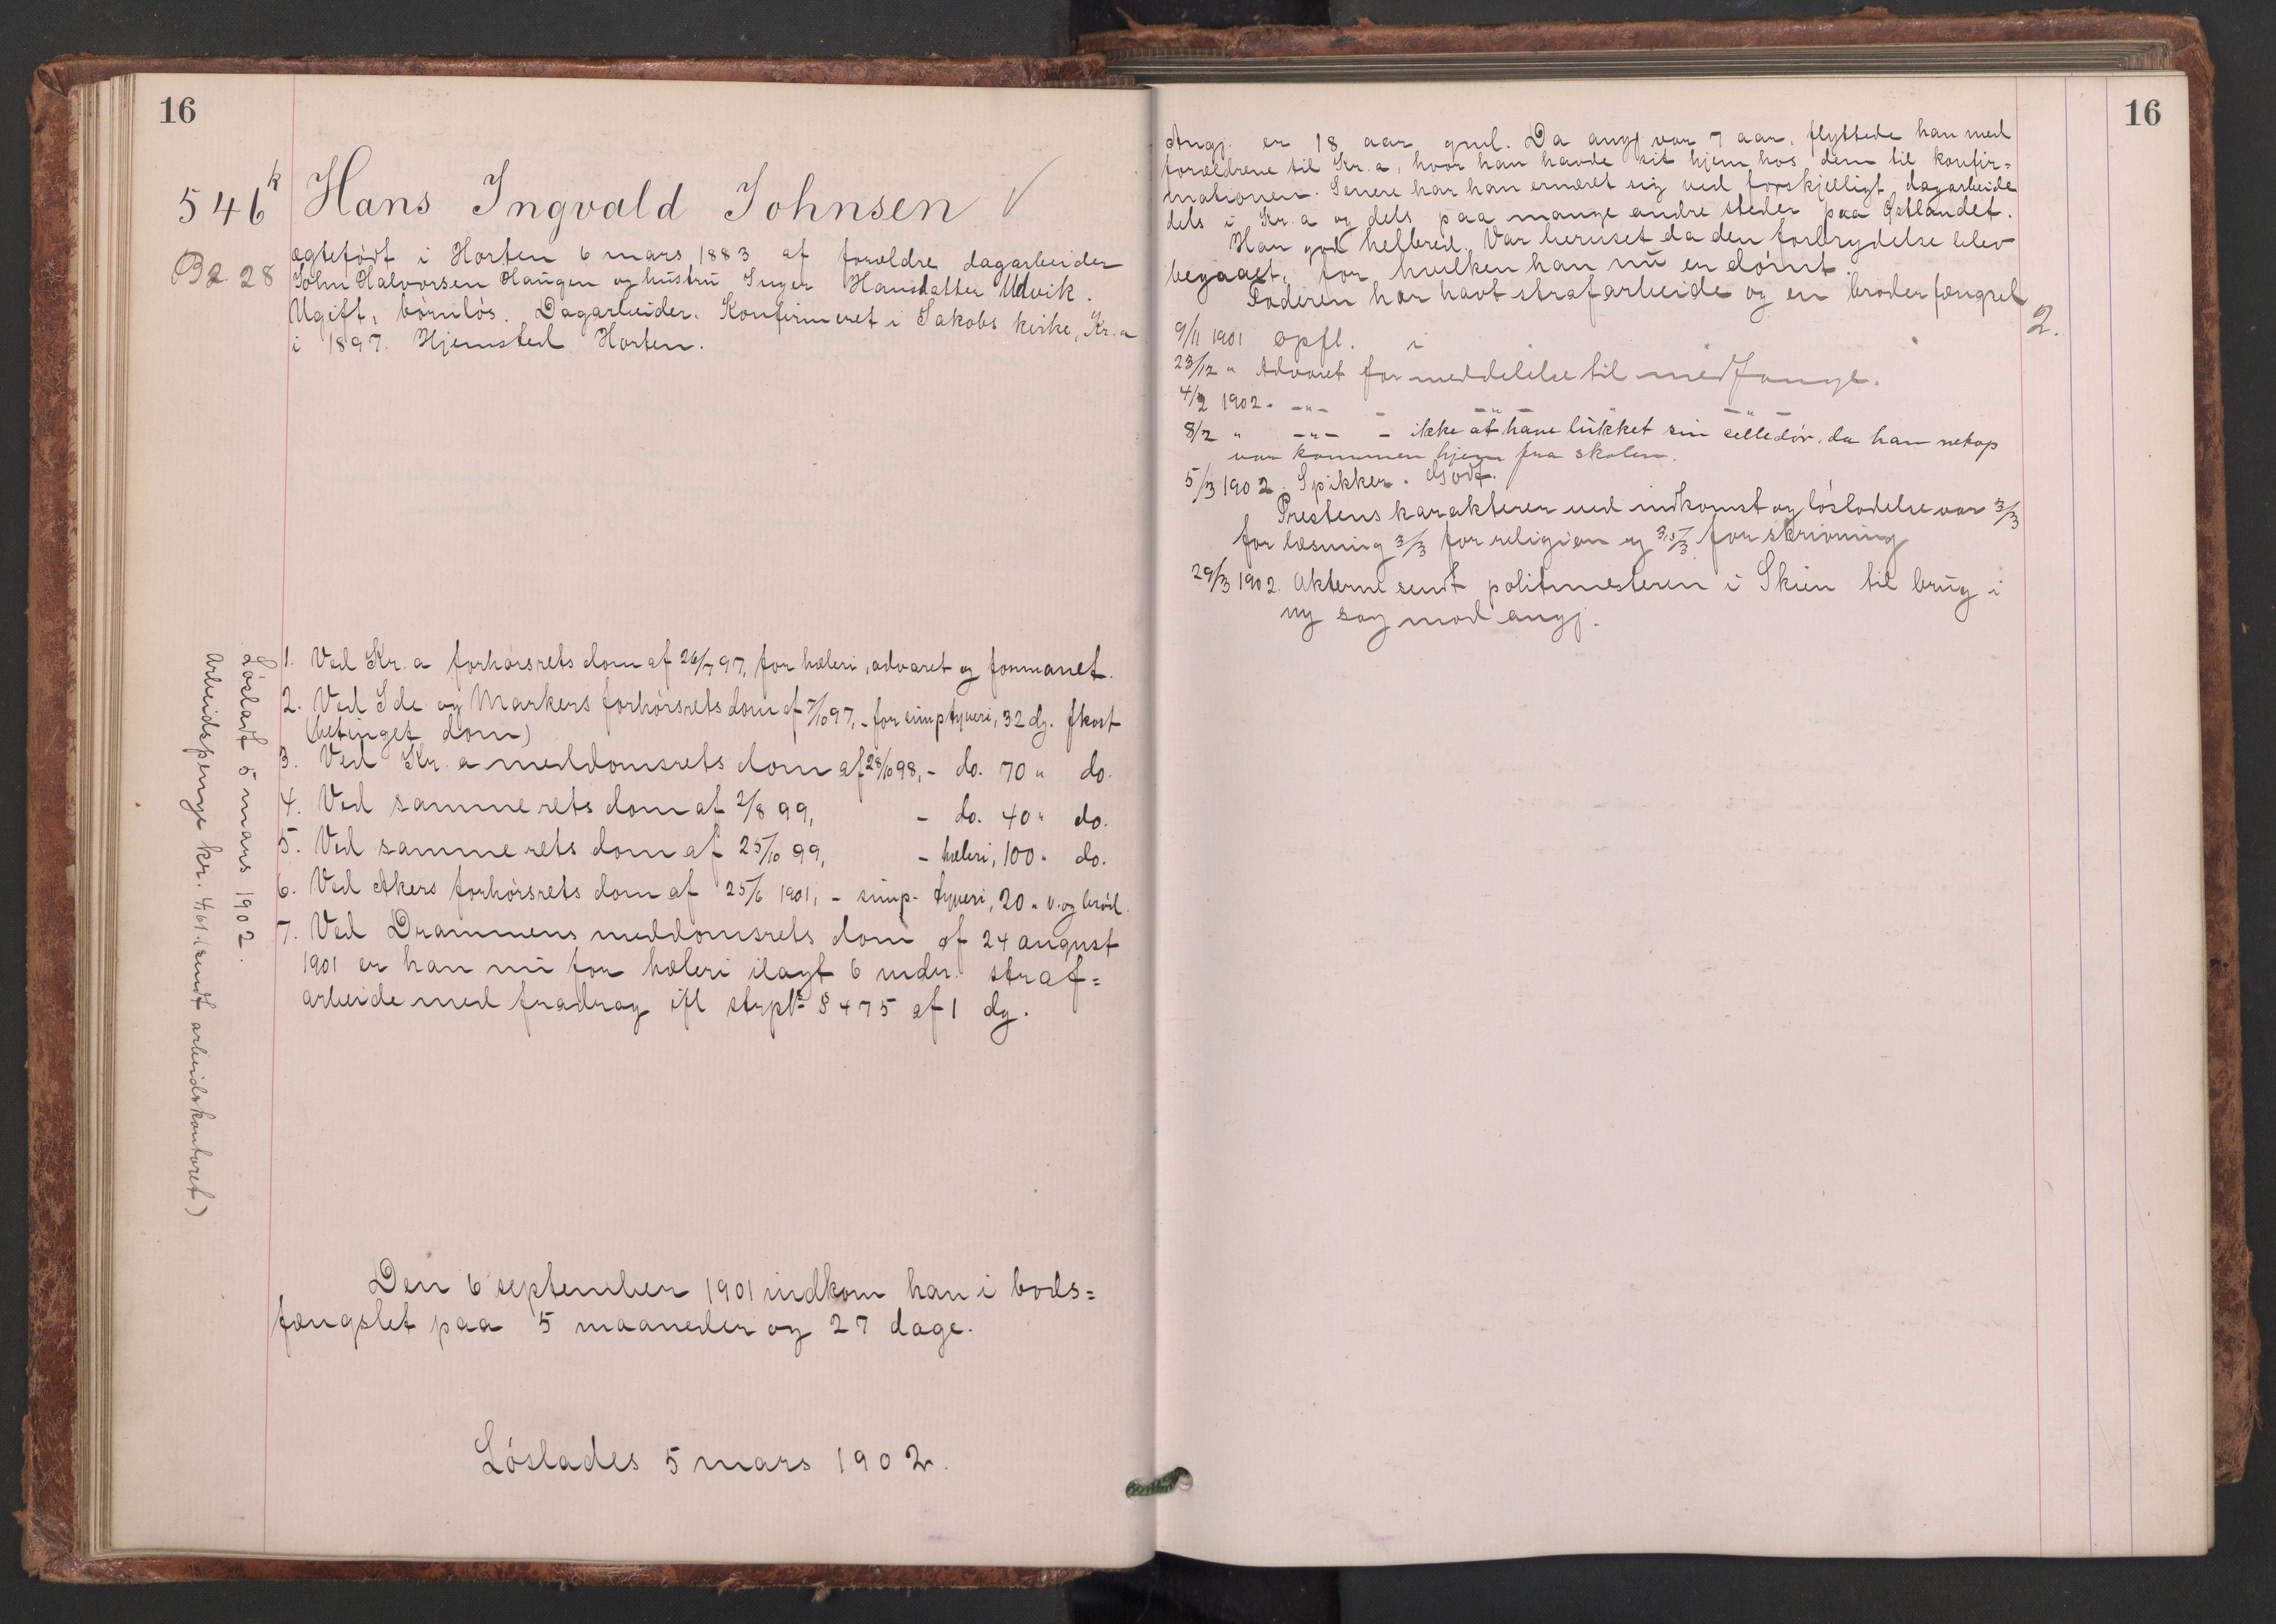 16
546 k Hans Ingvald Johnsen ✓
B2 28
ægtefødt i Horten 6 mars 1883 af forældre dagarbeider
John Halvorsen Haugen og hustru Inger Hansdatter Udvik.
Ugift, børnløs. Dagarbeider. Konfirmeret i Jakobs kirke, Kr.a
i 1897. Hjemsted Horten.
1. Ved Kr.a forhørsrets dom af 26/7 97, for hæleri, advaret og formanet.
2. Ved Ide og Markers forhørsrets dom af 7/10 97, - for simp tyveri, 32 dg. fkost
(betinget dom)
3. Ved Kr.a meddomsrets dom af 28/10 98, - do. 70 " do.
4. Ved samme rets dom af 2/8 99, - do. 40 " do.
5. Ved samme rets dom af 25/10 99, - hæleri, 100 " do.
6. Ved Akers forhørsrets dom af 25/6 1901, - simp. tyveri, 20 " v. og brød.
7. Ved Drammens meddomsrets dom af 24 august
1901 er han nu for hæleri ilagt 6 mdr. straf=
arbeide med fradrag ifl strpl § 475 af 1 dg.
Løsladt 5 mars 1902.
Arbeidspenge kr. 4,61 (sendt arbeidskontoret)
Den 6 september 1901 indkom han i bods=
fængslet paa 5 maaneder og 27 dage.
Løslades 5 mars 1902.
16
Angj. er 18 aar gml. Da angj var 7 aar, flyttede han med
forældrene til Kr.a, hvor han havde sit hjem hos dem til konfir=
mationen. Senere har han ernæret sig ved forskjelligt dagarbeide
dels i Kr.a og dels paa mange andre steder paa Østlandet.
Har god helbred. Var beruset da den forbrydelse blev
begaaet, for hvilken han nu er dømt.
Faderen har havt strafarbeide og en broder fængsel
2.
9/11 1901 opfl. i
23/12 " Advaret for meddelelse til medfange.
4/2 1902. -"- - -"- -"-
8/2 " -"- - ikke at have lukket sin celledør, da han netop
var kommen hjem fra skolen.
5/3 1902. Spikker. Godt.
Prestens karakterer ved indkomst og løsladelse var 3/3
for læsning 3/3 for religion og 3,5/3 for skrivning
29/3 1902. Akterne sendt politimesteren i Skien til brug i
ny sag mod angj.